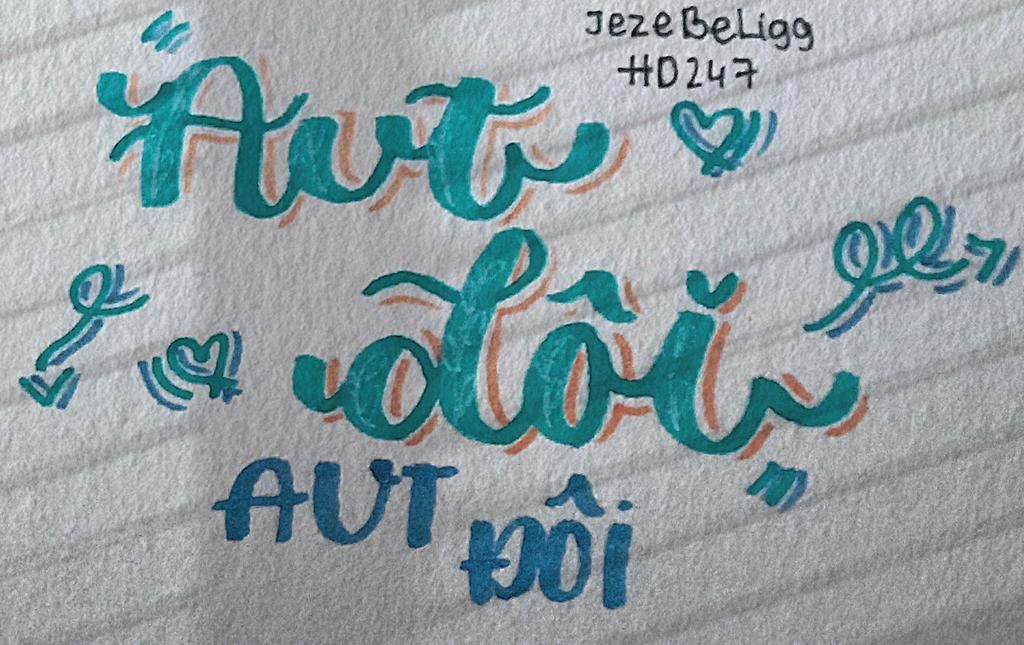 JezeBeLigg
HD247
"Aut
đôi"
AUT
ĐÔi